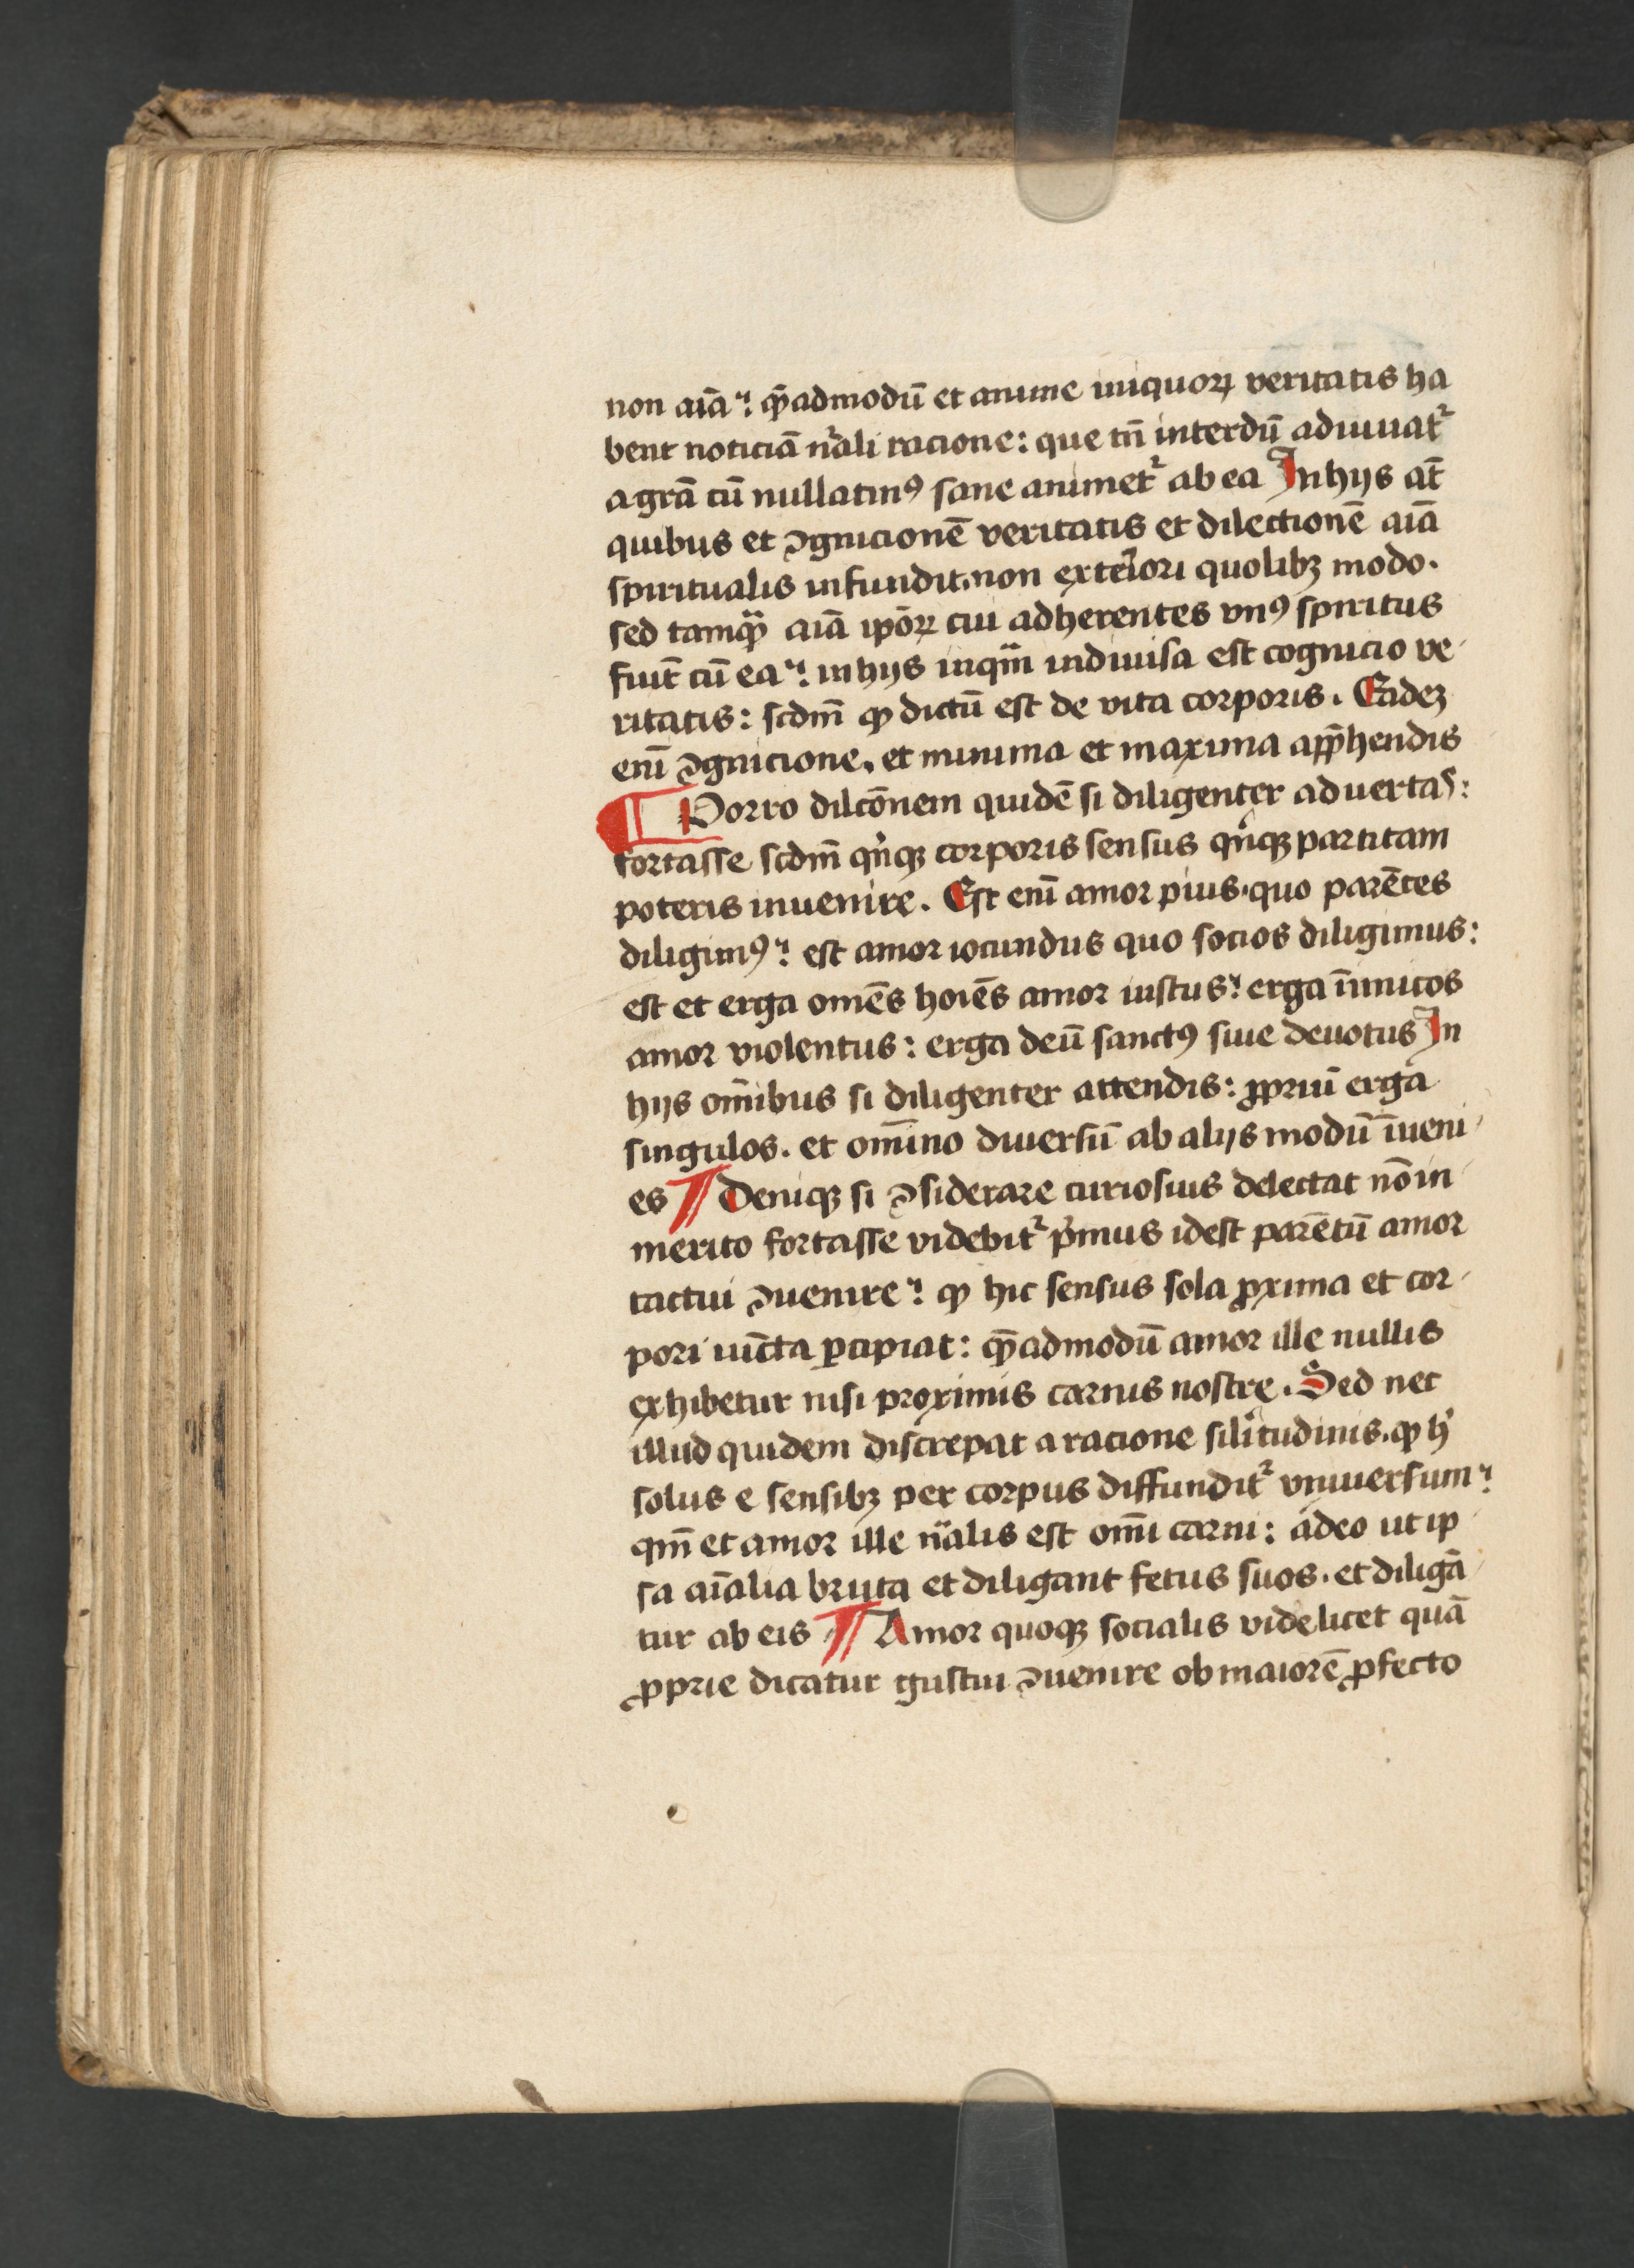 non aīa⹎ qͫadmodū et anime iniquoꝝ veritatis ha
bent noticiā nͣali racione: que tn̄ interdū adiuuat᷑
a grā cū nullatinꝰ sane animet᷑ ab ea In hijs at̄
quibus et ꝯgnicionē veritatis et dilectionē aīa
spiritualis infundit. non exteriori quolibꝫ modo.
sed tamqͣ aīa ip̄oꝝ cui adherentes vnꝰ spiritus
fiūt cū ea⹎ in hijs inqͣm indiuisa est cognicio ve
ritatis: scdm̄ ꝙ dictū est de vita corporis. Eadeꝫ
enī ꝯgnicione. et minima et maxima app̄hendis
¶ Porro dilcōnem quidē si diligenter aduertas:
fortasse scdm̄ qͥnqꝫ corporis sensus qͥnqꝫ partitam
poteris inuenire. Est enī amor pius. quo parētes
diligimꝰ⹎ est amor iocundus quo socios diligimus:
est et erga omēs hoīes amor iustus⹎ erga īimicos
amor violentus: erga deū sanctꝰ siue deuotus In
hijs om̄ibus si diligenter attendis: ꝓpriū erga
singulos. et om̄ino diuersū ab alijs modū īueni
es ¶ Deniqꝫ si ꝯsiderare curiosius delectat nō in
merito fortasse videbit᷑ pͥmus idest parētū amor
tactui ꝯuenire⹎ ꝙ hic sensus sola ꝓxima et cor
pori iūcta ꝑcipiat: qͫadmodū amor ille nullis
exhibetur nisi proximis carnis nostre. Sed nec
illud quidem discrepat a racione silͥitudinis. ꝙ hͥ
solus e sensibꝫ per corpus diffundit᷑ vniuersum⹎
qm̄ et amor ille nͣalis est om̄i carni: adeo ut ip
sa aīalia bruta et diligant fetus suos. et diligā
tur ab eis ¶ Amor quoqꝫ socialis videlicet quā
ꝓprie dicatur gustui ꝯuenire ob maiorē ꝓfecto